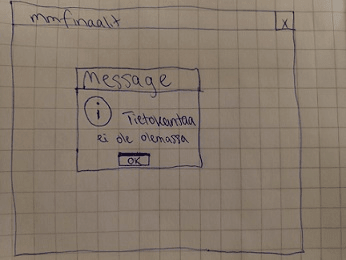 mmfinaalit
X
Message
i
Tietokantaa
ei ole olemassa
OK